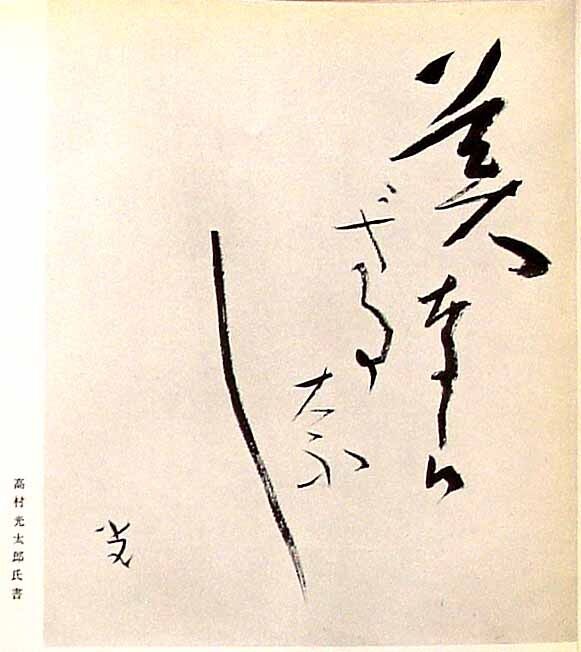 美なら
ざる
奈
し
光
高村光太郎氏書